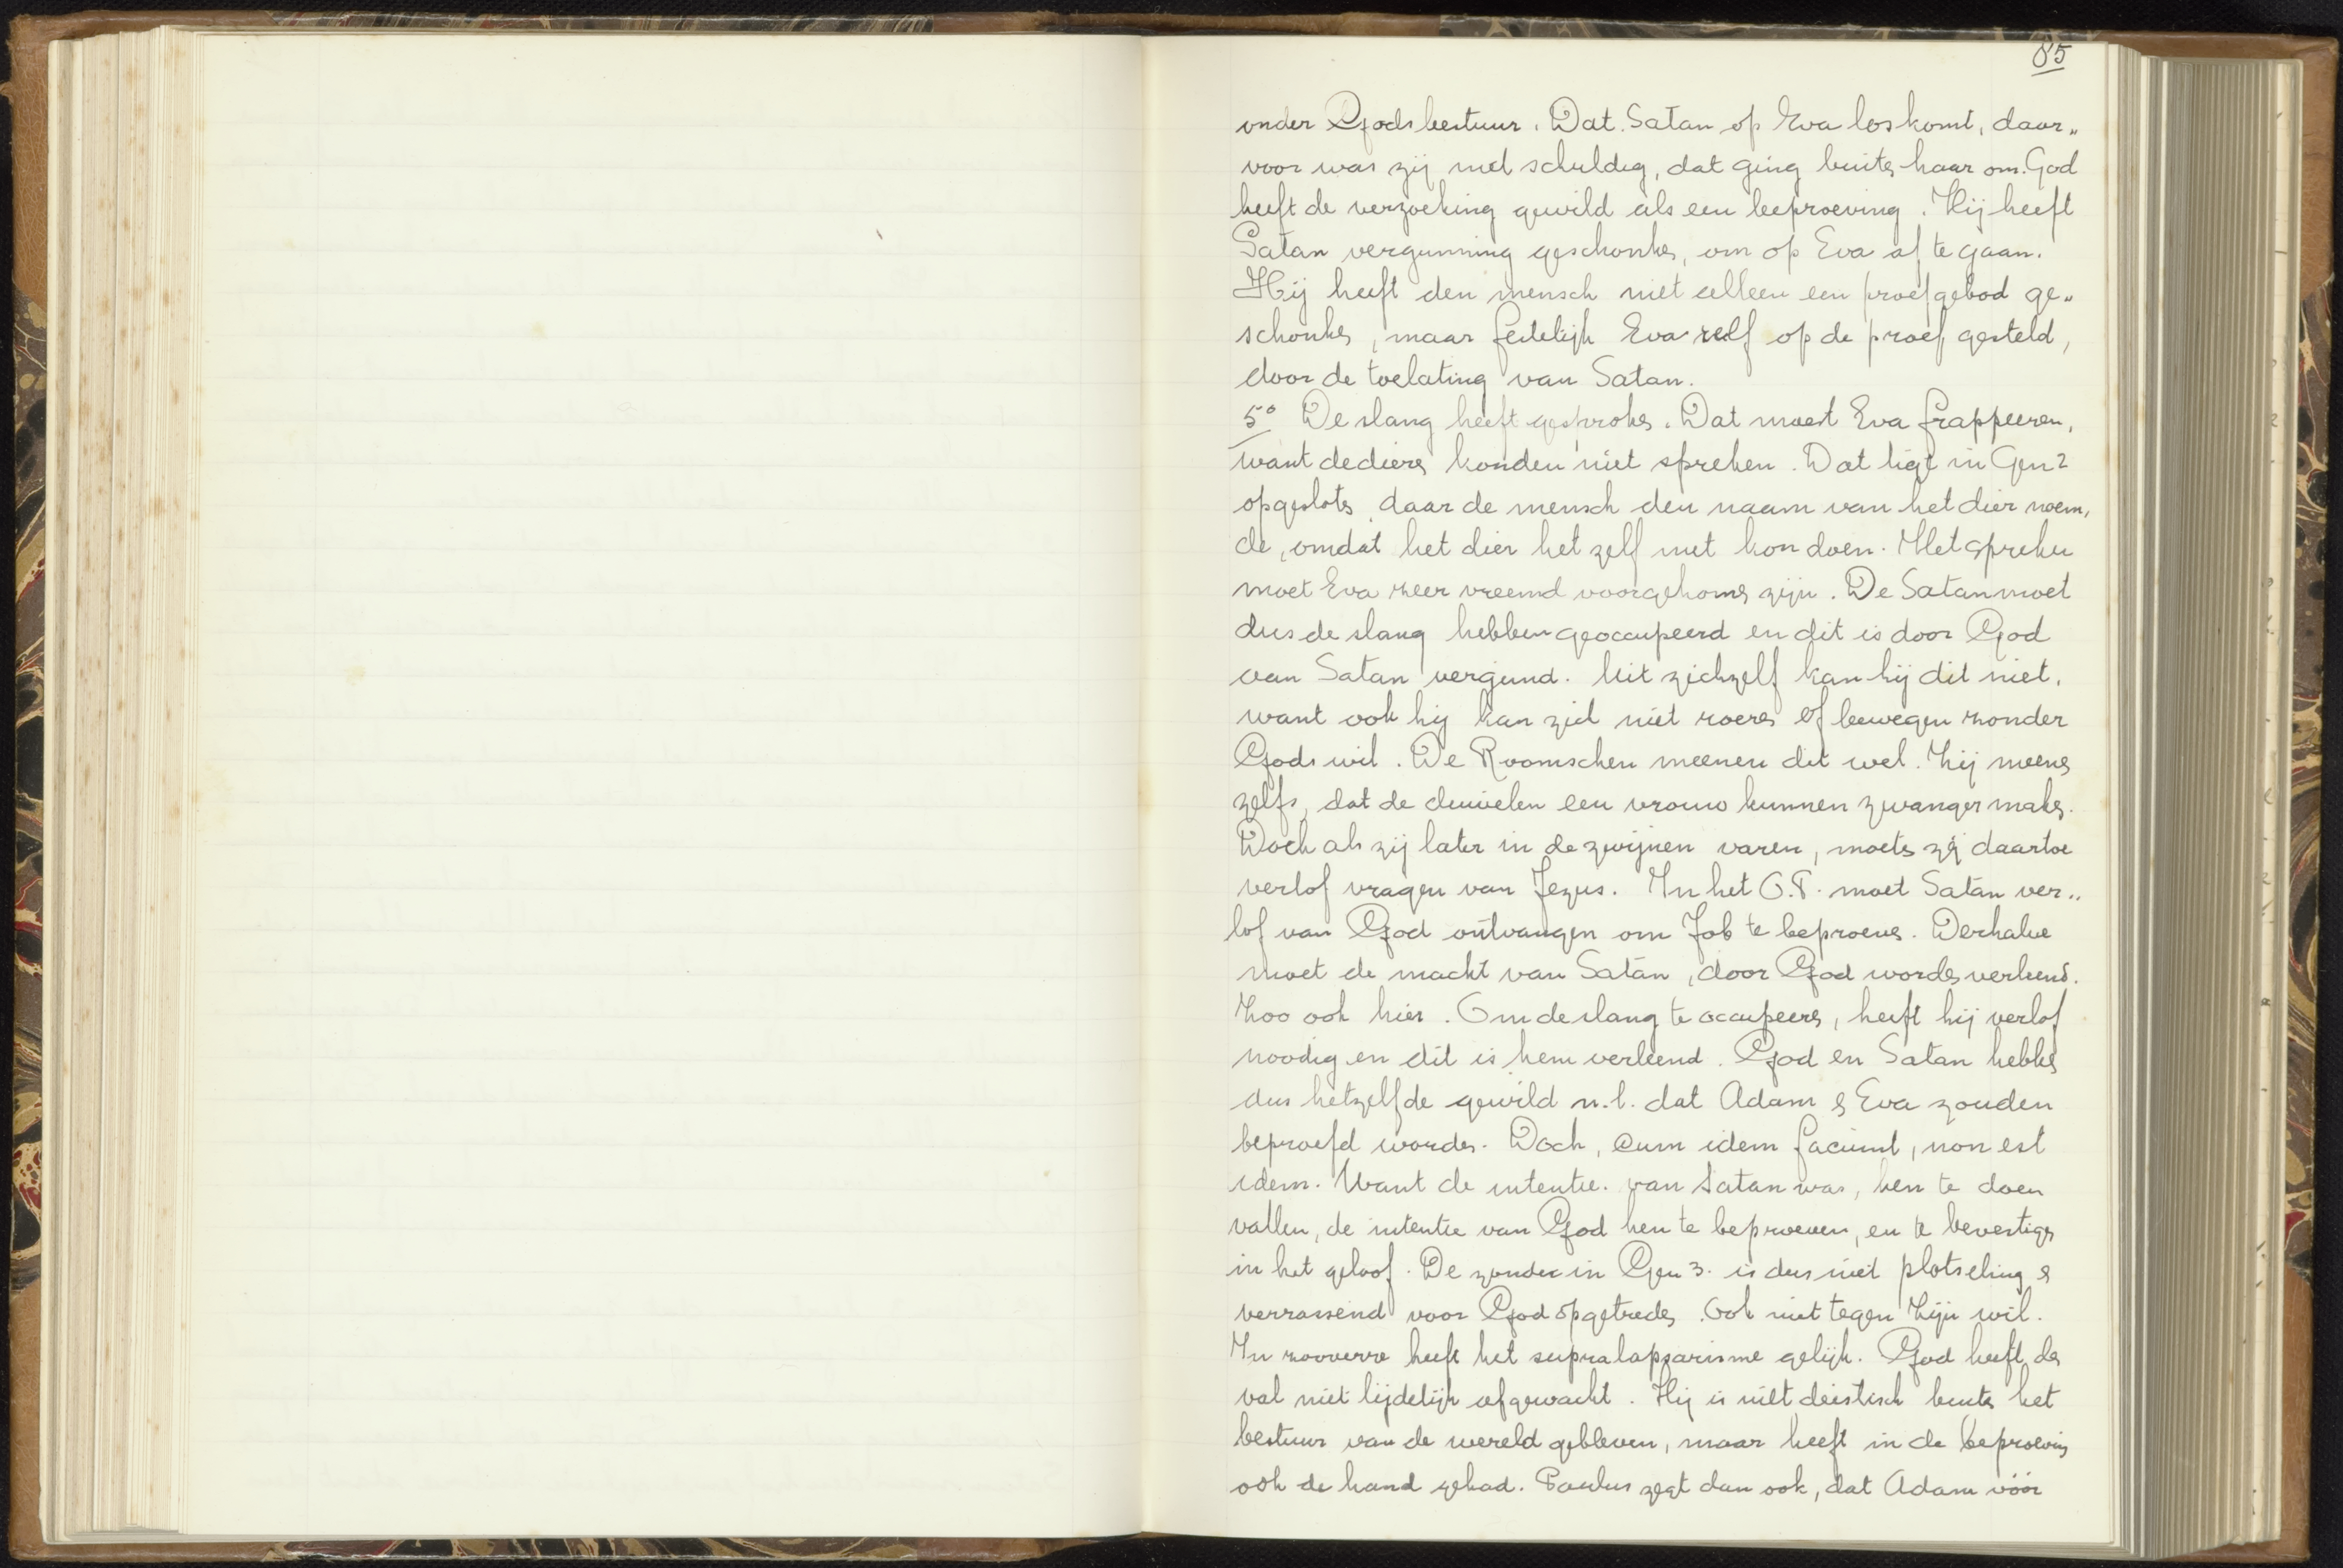 85
onder Gods bestuur. Dat Satan op Eva los komt, daar„
voor was zij niet schuldig, dat ging buiten haar om. God
heeft de verzoeking gewild als een beproeving. Hij heeft
Satan vergunning geschonken, om op Eva af te gaan.
Hij heeft den mensch niet alleen een proefgebod ge„
schonken, maar feitelijk Eva zelf op de proef gesteld,
door de toelating van Satan.
5° De slang heeft gesproken. Dat moest Eva frappeeren,
want de dieren konden niet spreken. Dat ligt in Gen 2
opgesloten, daar de mensch den naam van het dier noem„
de, omdat het dier het zelf niet kon doen. Het spreken
moet Eva zeer vreemd voorgekomen zijn. De Satan moet
dus de slang hebben geoccupeerd en dit is door God
aan Satan vergund. Uit zichzelf kan hij dit niet,
want ook hij kan zich niet roeren of bewegen zonder
Gods wil. De Roomschen meenen dit wel. Zij meenen
zelfs, dat de duivelen een vrouw kunnen zwanger maken.
Doch als zij later in de zwijnen varen, moeten zij daartoe
verlof vragen van Jezus. In het O.T. moet Satan ver„
lof van God ontvangen om Job te beproeven. Derhalve
moet de macht van Satan, door God worden verleend.
Zoo ook hier. Om de slang te occupeeren, heeft hij verlof
noodig en dit is hem verleend. God en Satan hebben
dus hetzelfde gewild n.l. dat Adam & Eva zouden
beproefd worden. Doch, cum idem faciunt, non est
idem. Want de intentie van Satan was, hen te doen
vallen, de intentie van God hen te beproeven, en te bevestigen
in het geloof. De zonde in Gen 3. is dus niet plotseling &
verrassend voor God opgetreden. Ook niet tegen Zijn wil.
In zooverre heeft het supralapsarisme gelijk. God heeft den
val niet lijdelijk afgewacht. Hij is niet deistisch buiten het
bestuur van de wereld gebleven, maar heeft in de beproeving
ook de hand gehad. Paulus zegt dan ook, dat Adam vóór